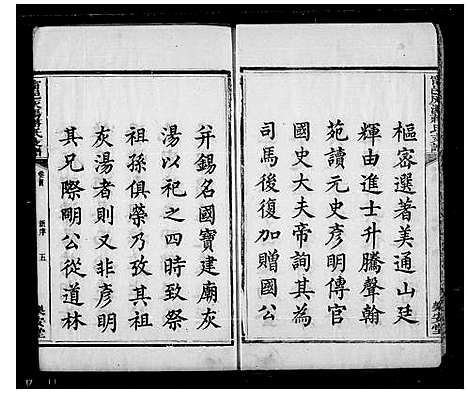 樞密選著美通山廷
輝由進士升騰聲翰
苑讀元史彥明傳官
國史大夫帝詢其高
司馬後復加贈國公
并錫名國寶建廟灰
湯以祀之四時致祭
祖孫俱榮乃攷其祖
灰湯者則又非彥明
其兄際明公從道林
卷首
新序
五